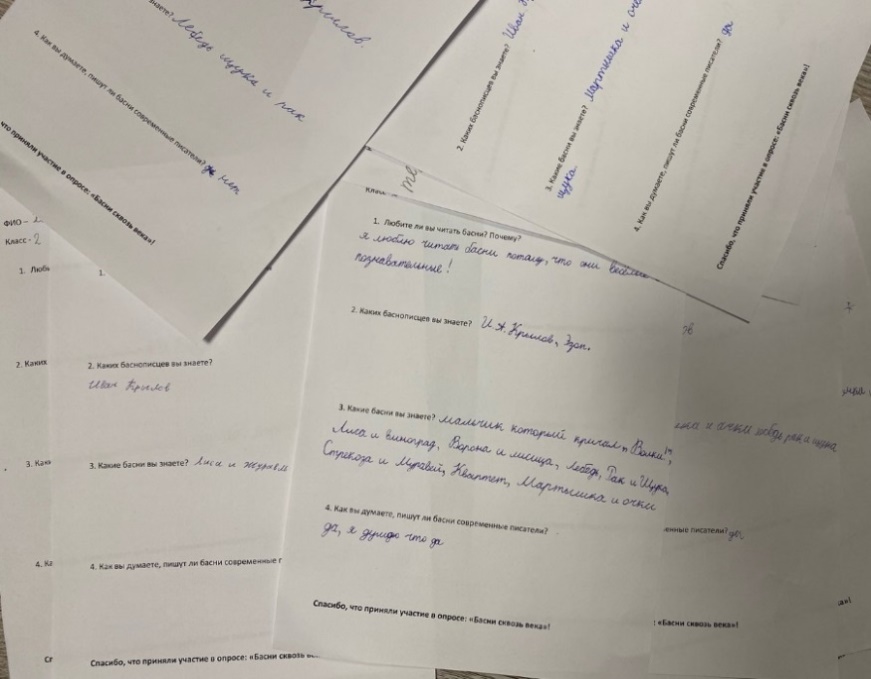 Крылов.
знаете? Лебедь щука и рак
4. Как вы думаете, пишут ли басни современные писатели? нет
что приняли участие в опросе: «Басни сквозь века»!
2. Каких баснописцев вы знаете? Иван
3. Какие басни вы знаете? Мартышка и
щука.
4. Как вы думаете, пишут ли басни современные писатели? да
Спасибо, что приняли участие в опросе: «Басни сквозь века»!
ФИО -
Класс - 2
1. Любите ли вы читать басни? Почему?
я люблю читать басни потому, что они
познавательные!
2. Каких баснописцев вы знаете? И.А. Крылов, Эзоп.
3. Какие басни вы знаете? мальчик который кричал "Волки",
Лиса и виноград, Ворона и лисица, Лебедь, Рак и Щука,
Стрекоза и Муравей, Квартет, Мартышка и очки
4. Как вы думаете, пишут ли басни современные писатели?
да, я думаю что да
Спасибо, что приняли участие в опросе: «Басни сквозь века»!
1.
2. Каких
2. Каких баснописцев вы знаете?
Иван Крылов
3. Какие басни вы знаете? Лиса и журавль
4. Как вы думаете, пишут ли басни современные
Спасибо, что приняли участие в опросе: «Басни сквозь
и очки лебедь рак и щука
писатели? да.
: «Басни сквозь века»!